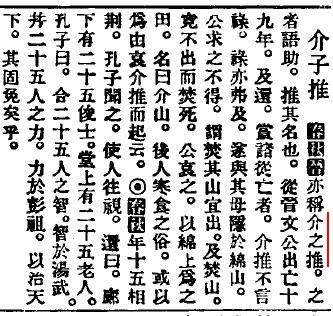 介子推 春秋晉 亦稱介之推。之
者語助。推其名也。從晉文公出亡十
九年。及還。賞諸從亡者。介推不言
祿。祿亦弗及。遂與其母隱於綿山。
公求之不得。謂焚其山宜出。及焚山。
竟不出而焚死。公哀之。以綿上爲之
田。名曰介山。後人寒食之俗。或以
爲由哀介推而起云。◎春秋年十五相
荆。孔子聞之。使人往視。還曰。廊
下有二十五俊士。堂上有二十五老人。
孔子曰。合二十五人之智。智於湯武。
幷二十五人之力。力於彭祖。以治天
下。其固免矣乎。